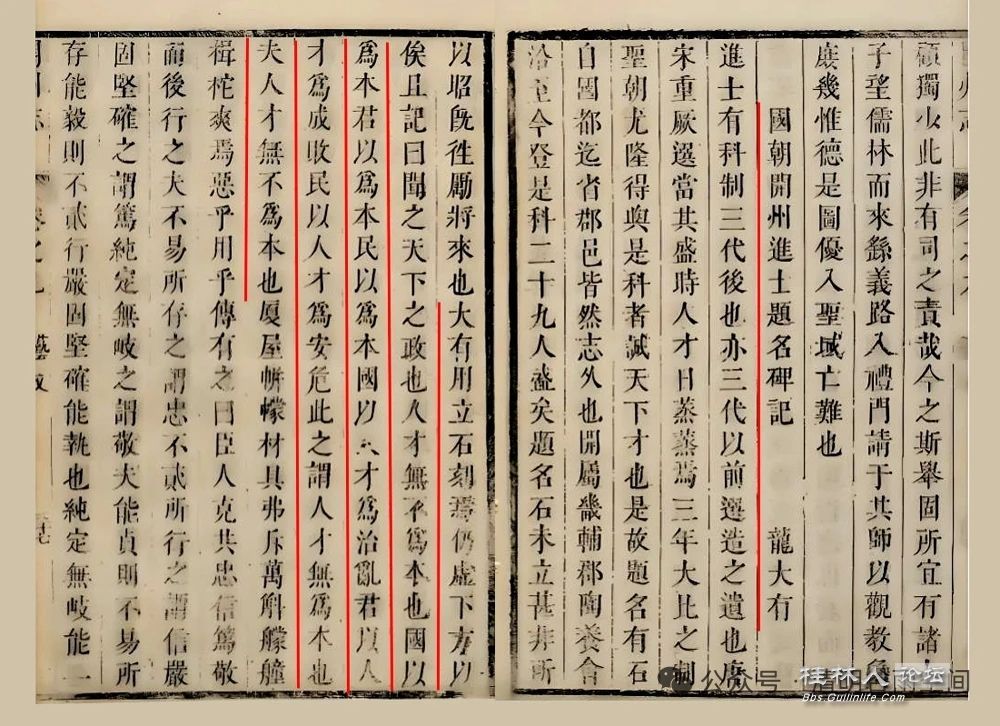 顧獨少此非有司之責哉今之斯舉固所宜有諸
子望儒林而來繇義路入禮門請于其師以觀教
庶幾惟德是圖優入聖域亡難也
國朝開州進士題名碑記 龍大有
進士有科制三代後也亦三代以前選造之遺也唐
宋重厥選當其盛時人才日蒸蒸焉三年大比之制
聖朝尤隆得與是科者誠天下才也是故題名有石
自國都迄省郡邑皆然志久也開屬畿輔郡陶養含
洽至今登是科二十九人盛矣題名石未立甚非所
以昭既徃勵將來也大有用立石刻焉仍虛下方以
俟且記曰聞之天下之政也人才無不為本也國以
為本君以為本民以為本國以人才為治亂君以人
才為成敗民以人才為安危此之謂人才無為本也
夫人才無不為本也厦屋帡幪材具弗斥萬斛艨艟
楫柁爽焉惡乎用乎傳有之曰臣人克共忠信篤敬
而後行之夫不易所存之謂忠不貳所行之謂信嚴
固堅確之謂篤純定無岐之謂敬夫能貞則不易所
存能毅則不貳行嚴固堅確能執也純定無岐能一
藝文
公众号
桂林人论坛
Bbs.Guilinlife.Com